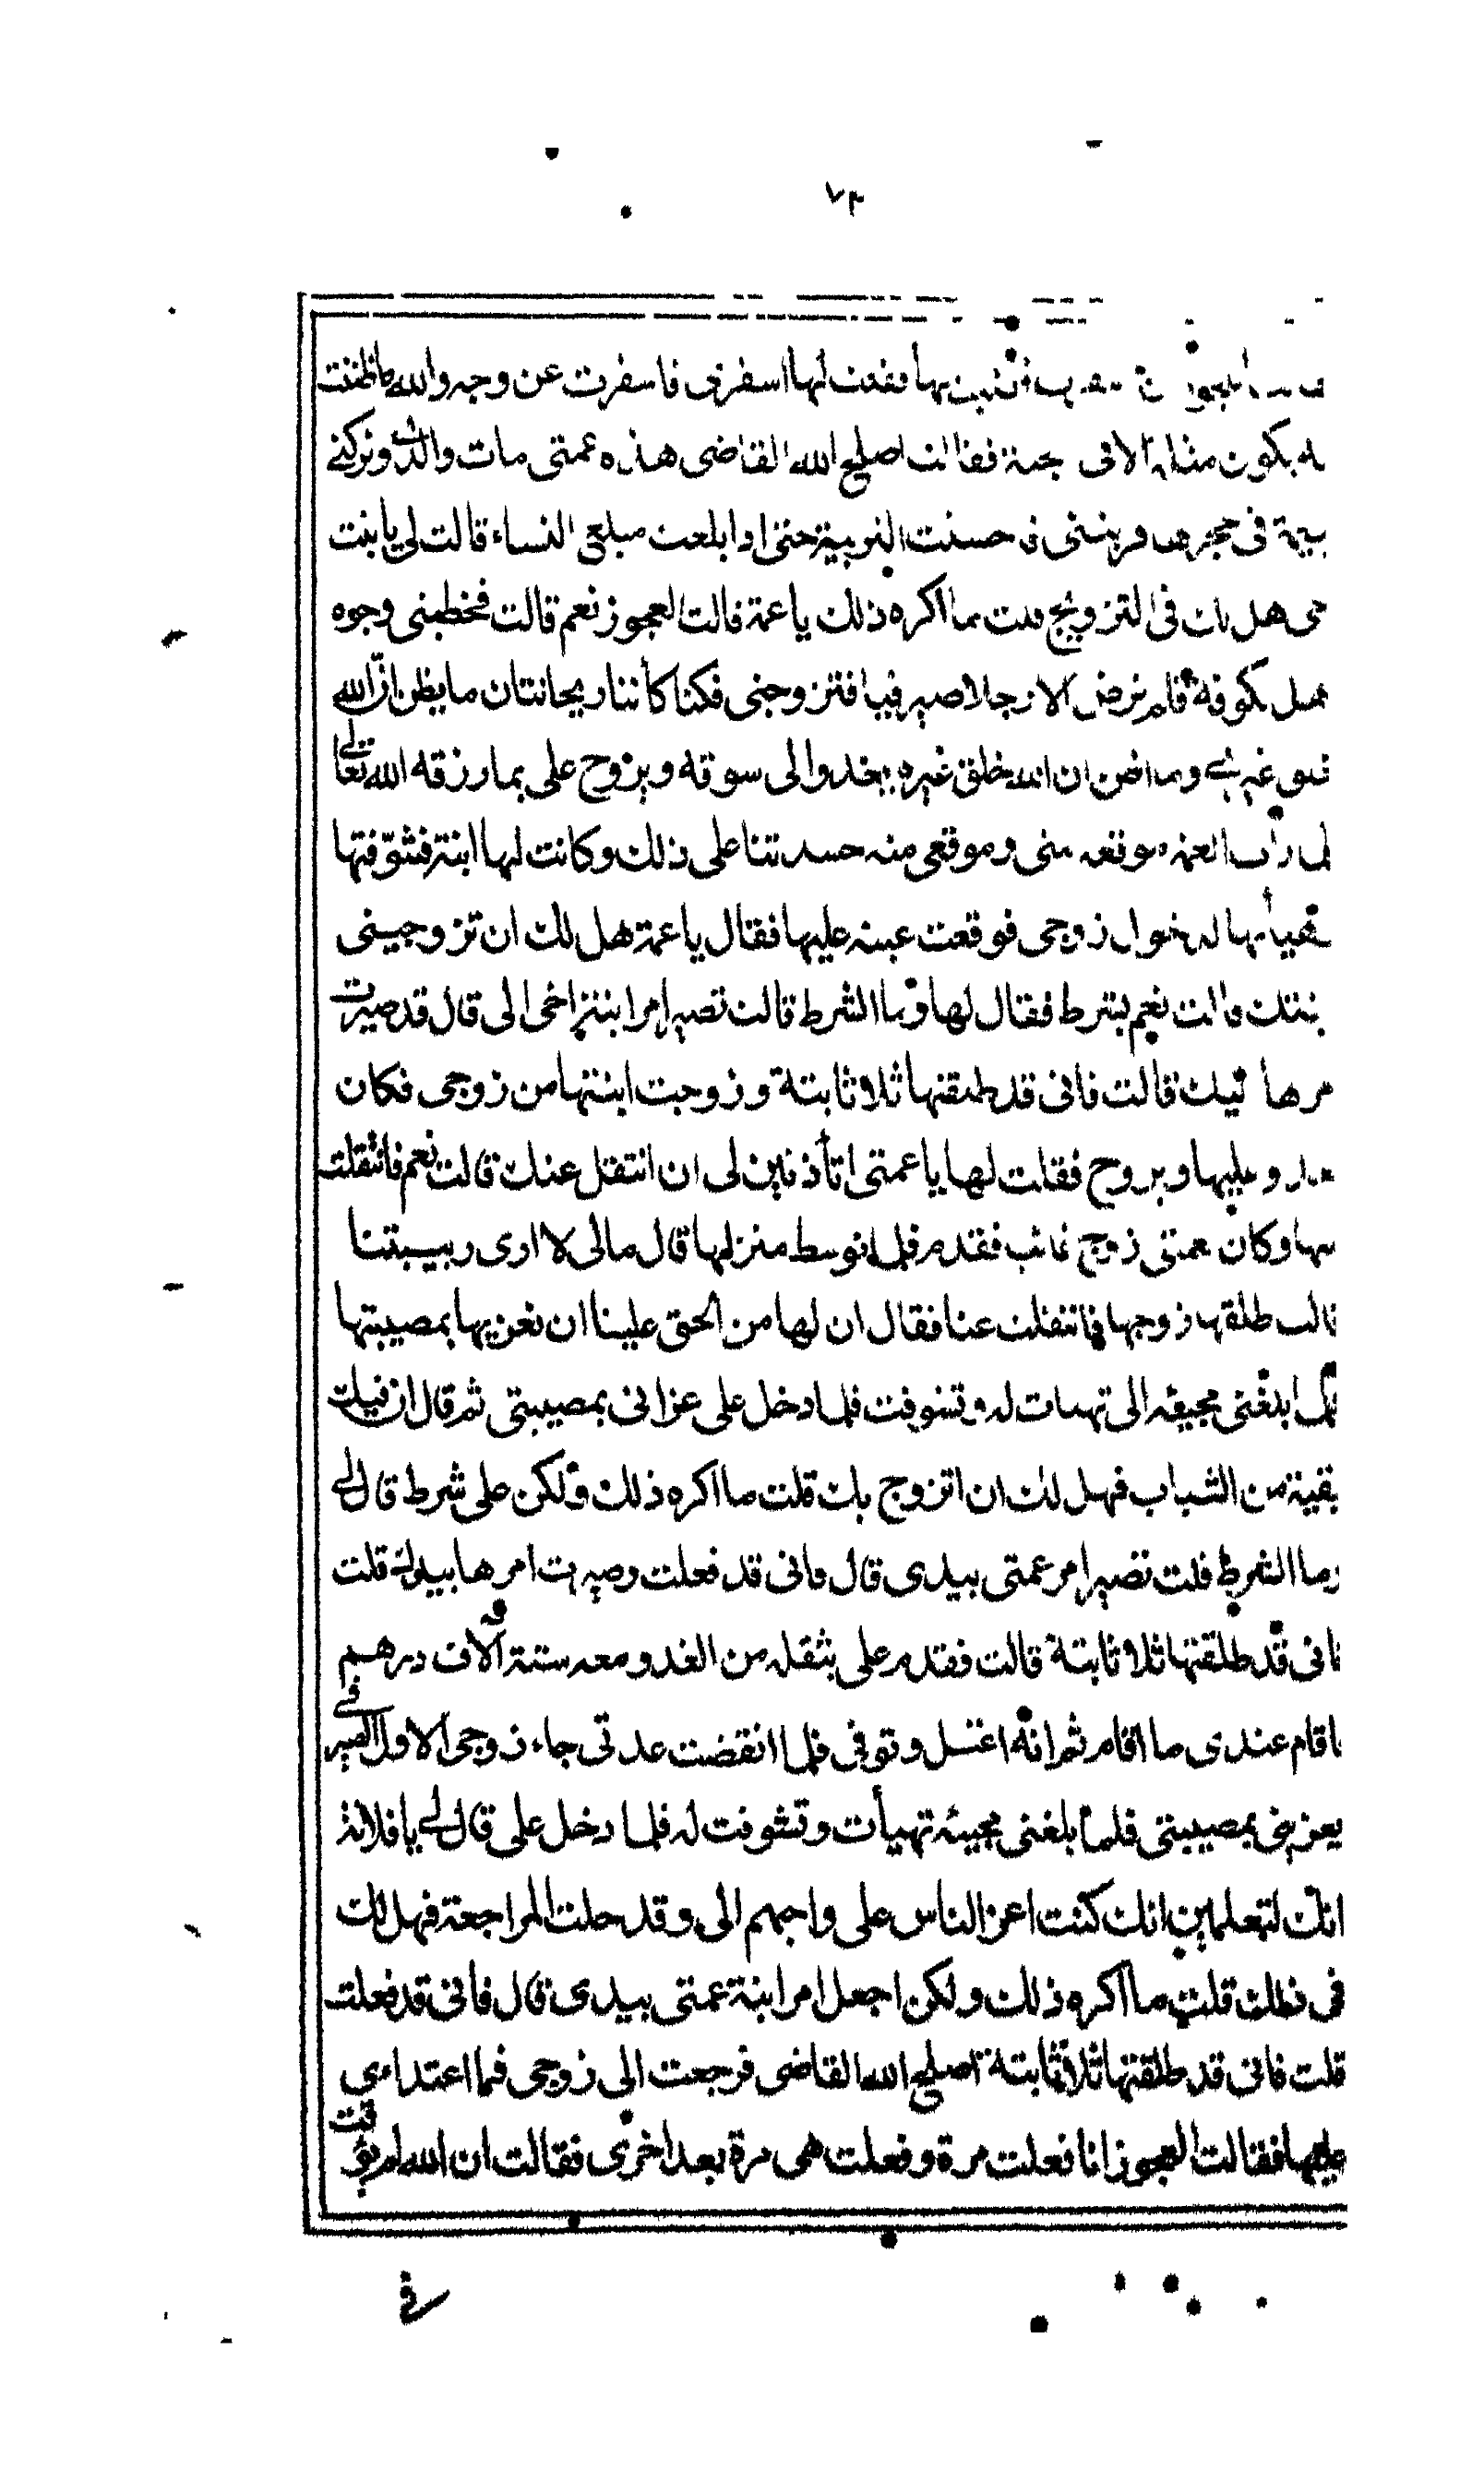 ٧٢
فقلت لها اسفرى فاسفرت عن وجه والله ما ظننت
يكون مثله الا فى الجنة فقالت اصلح الله القاضى هذه عمتى مات والدى وتركنى
يتيمة فى حجرها فربتنى فاحسنت التربية حتى اذا بلغت مبلغ النساء قالت لى يا بنت
اخى هل لك فى التزويج قلت ما اكره ذلك يا عمة قالت العجوز نعم قالت فخطبنى وجوه
اهل الكوفة فلم ترض الا رجلا صيرفيا فتزوجنى فكنا كأننا ريحانتان ما يظن ان الله
خلق غيرى وما اظن ان الله خلق غيره يغدوا الى سوقه ويروح على بما رزقه الله تعالى
فلما رأت العمة موقعه منى وموقعى منه حسدتنا على ذلك وكانت لها ابنة فشوفتها
وهيأتها لدخول زوجى فوقعت عينه عليها فقال يا عمة هل لك ان تزوجينى
بنتك قالت نعم بشرط فقال لها وما الشرط قالت تصير امر ابنة اخى الى قال قد صيرت
امرها اليك قالت فانى قد طلقتها ثلاثا بتة وزوجت ابنتها من زوجى فكان
يغدو عليها ويروح فقلت لها يا عمتى اتأذنين لى ان انتقل عنك قالت نعم فانتقلت
عنها وكان لعمتى زوج غائب فقدم فلما توسط منزلها قال مالى لا ارى ربيبتنا
قالت طلقها زوجها فانتقلت عنا فقال ان لها من الحق علينا ان نعزيها بمصيبتها
فلما بلغنى مجيئه الى تهيأت له وتشوفت فلما دخل على عزانى بمصيبتى ثم قال ان فيك
بقية من الشباب فهل لك ان اتزوج بك قلت ما اكره ذلك ولكن على شرط قال لى
وما الشرط قلت تصير امر عمتى بيدى قال فانى قد فعلت وصيرت امرها بيدك قلت
فانى قد طلقتها ثلاثا بتة قالت فقدم على بثقله من الغد ومعه ستة آلاف درهم
فاقام عندى ما اقام ثم انه اعتل وتوفى فلما انقضت عدتى جاء زوجى الاول الصيرفى
يعزينى بمصيبتى فلما بلغنى مجيئه تهيأت وتشوفت له فلما دخل على قال لى يا فلانة
انك لتعلمين انك كنت اعز الناس على واحبهم الى وقد حلت المراجعة فهل لك
فى ذلك قلت ما اكره ذلك ولكن اجعل امر ابنة عمتى بيدى قال فانى قد فعلت
قلت فانى قد طلقتها ثلاثا بتة اصلح الله القاضى فرجعت الى زوجى فما اعتداءى
عليها فقالت العجوز انا فعلت مرة وفعلت هى مرة بعد اخرى فقالت ان الله لم يوقت
فى